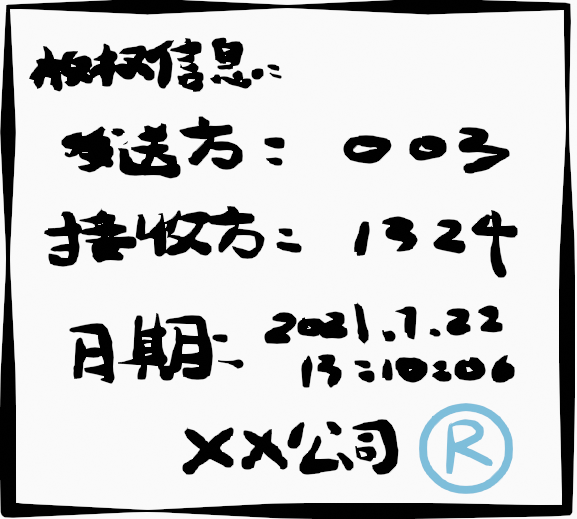 版权信息:
发送方: 003
接收方: 1324
日期: 2021.7.22
13:10:06
XX公司 R